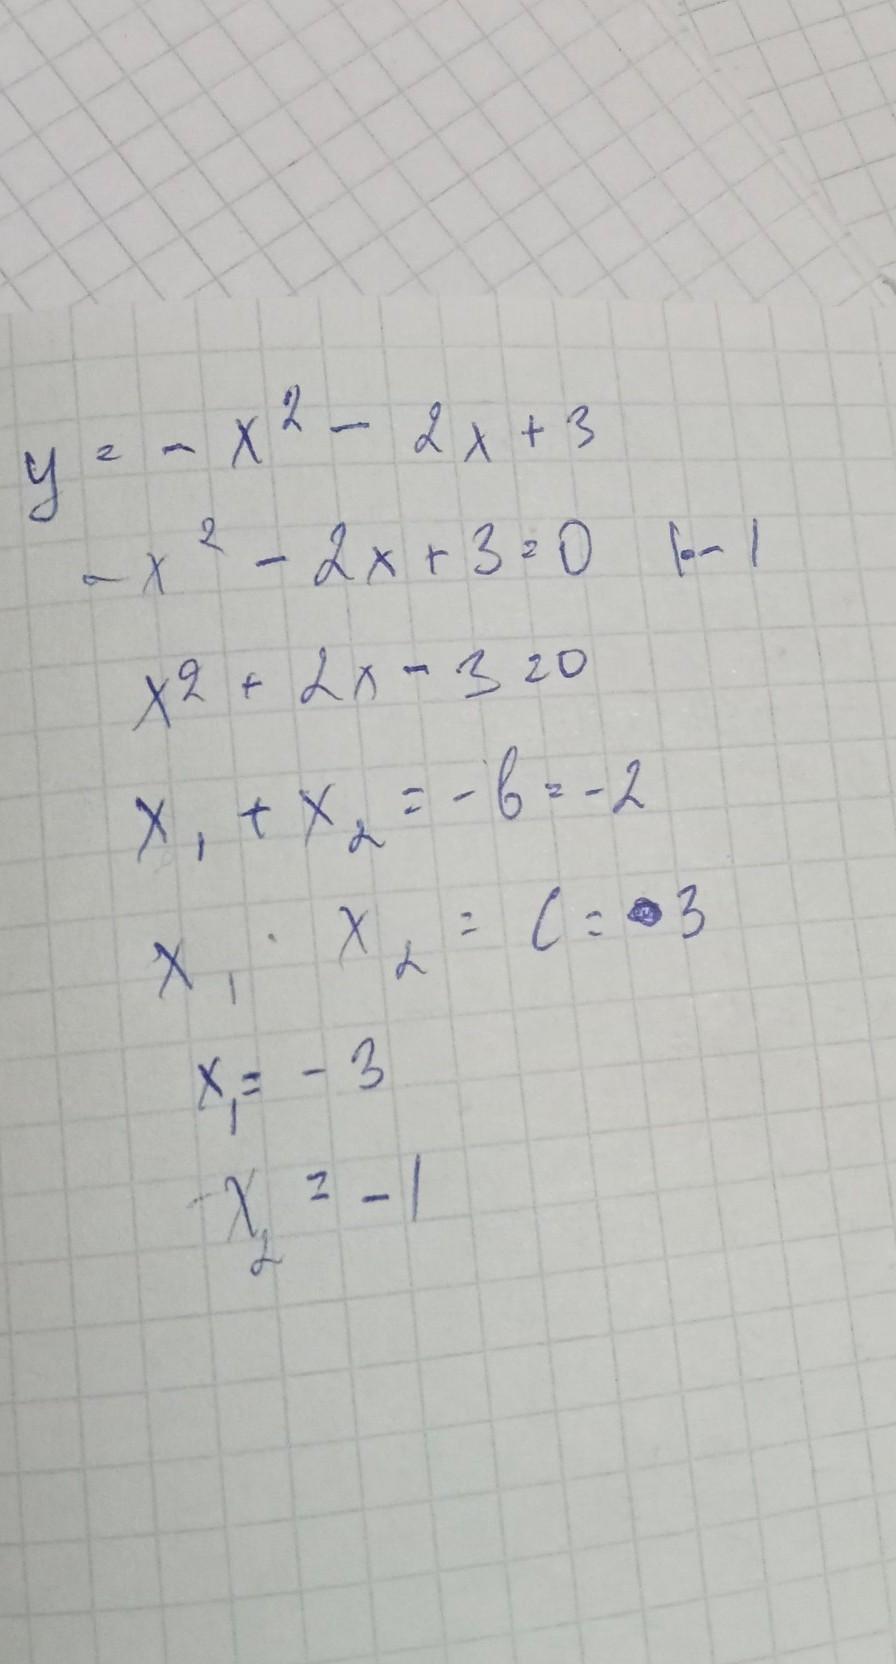 y = - x² - 2x + 3
- x² - 2x + 3 = 0 |·-1
x² + 2x - 3 = 0
x₁ + x₂ = -b = -2
x₁ · x₂ = c = 3
x₁ = - 3
x₂ = - 1